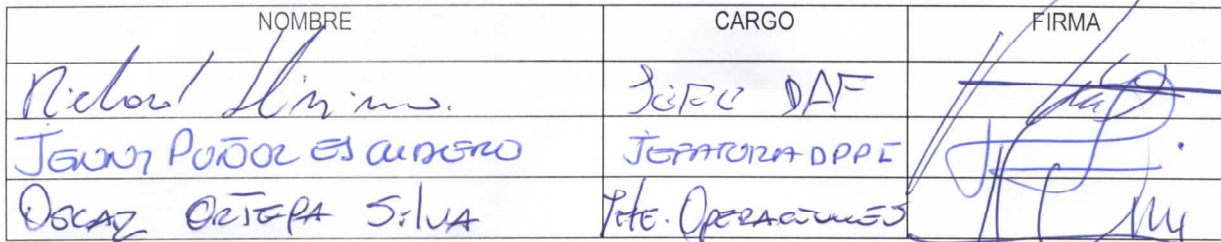 NOMBRE CARGO FIRMA
JEFE DAF
JENNY ESCUDERO JEFATURA DPPE
OSCAR ORTEGA SILVA Jefe. OPERACIONES